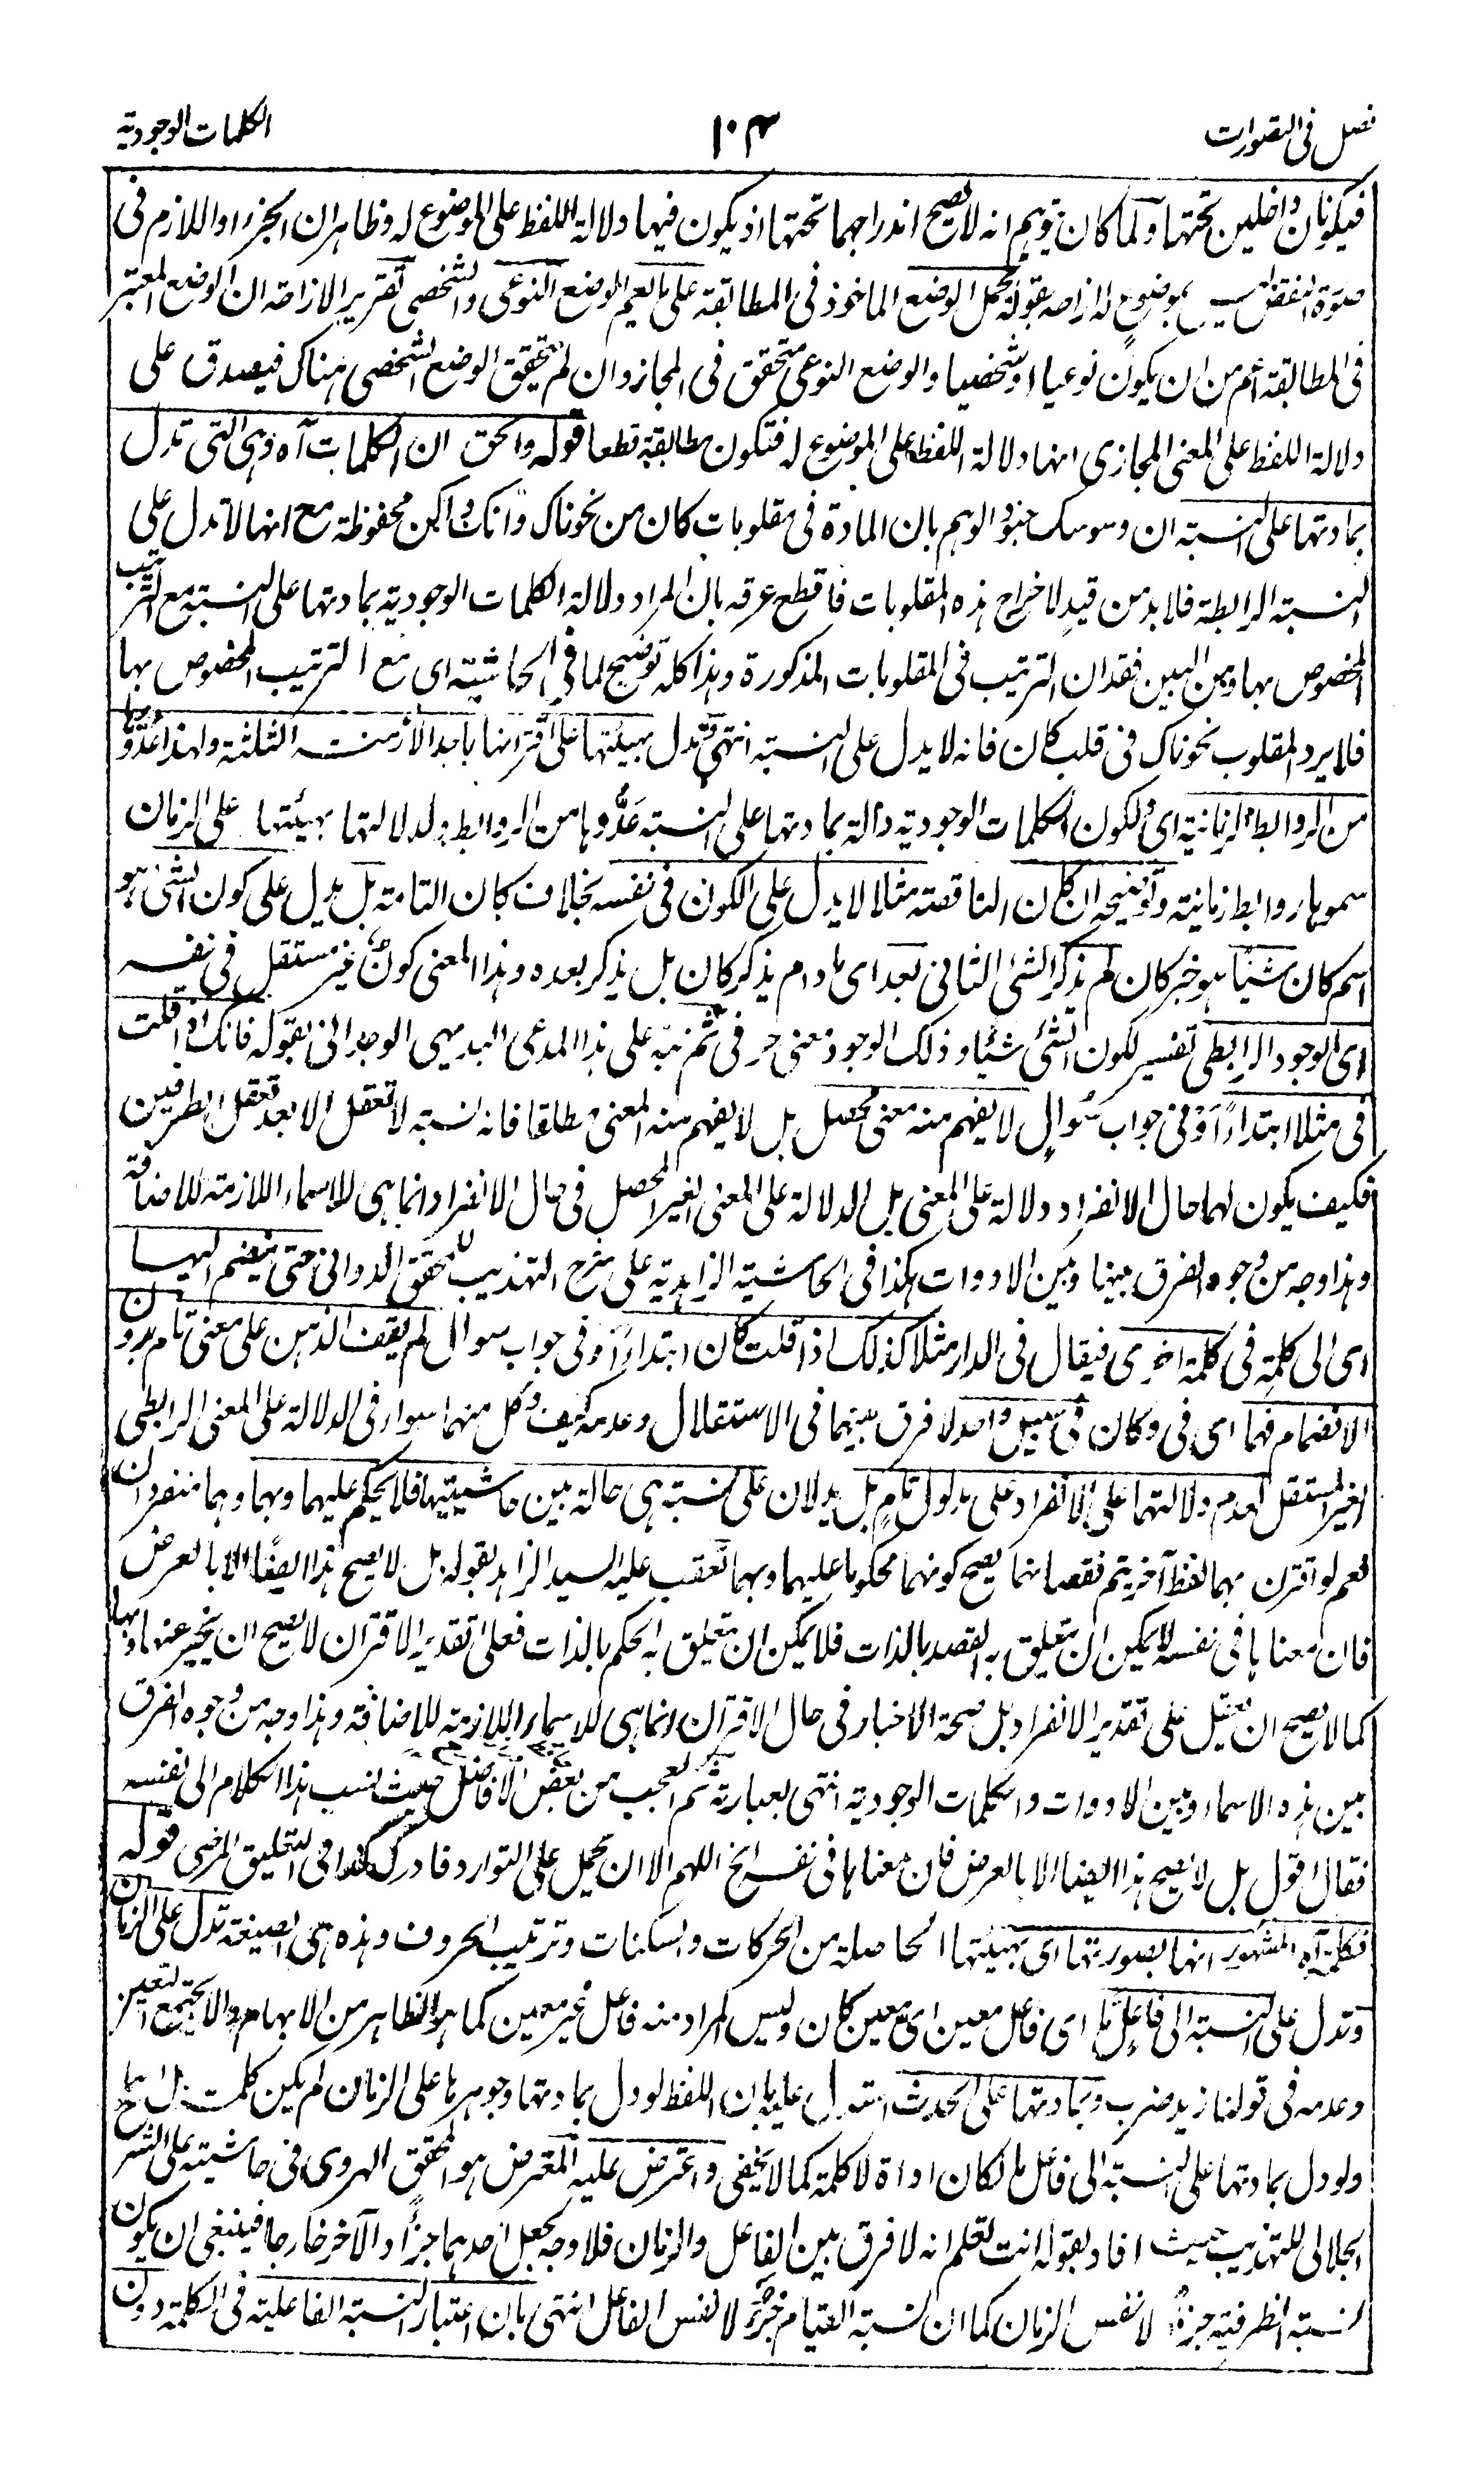 فصل فى التصورات
١٠٤
الكلمات الوجودية
فيكونان داخلين تحتها ولما كان يتوهم انه لا يصح اندراجهما تحتها اذ يكون فيها دلالة اللفظ على الموضوع له وظاهر ان الجزء او اللازم فى
صورة النقض ليس بموضوع له ازاحه بقوله يحمل الوضع الماخوذ فى المطابقة على ما يعم الوضع النوعى والشخصى تقرير الازاحة ان الوضع المعتبر
فى المطابقة اعم من ان يكون نوعيا او شخصيا والوضع النوعى متحقق فى المجاز وان لم يتحقق الوضع الشخصى هناك فيصدق على
دلالة اللفظ على المعنى المجازى انها دلالة اللفظ على الموضوع له فتكون مطابقة قطعا قوله والحق ان الكلمات آه وهى التى تدل
بمادتها على النسبة ان وسوسك جنود الوهم بان المادة فى مقلوبات كان من نحو ناك وانك واكن محفوظة مع انها لا تدل على
النسبة الرابطة فلا بد من قيد لاخراج هذه المقلوبات فاقطع عرقه بان المراد دلالة الكلمات الوجودية بمادتها على النسبة مع الترتيب
المخصوص بها ومن البين فقدان الترتيب فى المقلوبات المذكورة وهذا كله توضيح لما فى الحاشية اى مع الترتيب المخصوص بها
فلا يرد المقلوب نحو ناك فى قلب كان فانه لا يدل على النسبة انتهى وتدل بهيئتها على اقترانها باحد الازمنة الثلثة ولهذا عدوها
من الروابط الزمانية اى لكون الكلمات الوجودية دالة بمادتها على النسبة عدوها من الروابط ولدلالتها بهيئتها على الزمان
سموها روابط زمانية وتوضيحه ان كان الناقصة مثلا لا يدل على الكون فى نفسه بخلاف كان التامة بل يدل على كون الشئ هو
اسم كان شيئا هو خبر كان لم يذكر الشئ الثانى بعد اى ما دام يذكر كان بل يذكر بعده وهذا المعنى كون غير مستقل فى نفسه
اى الوجود الرابطى تفسير لكون الشئ شيئا وذلك الوجود معنى حرفى ثم نبه على هذا المدعى البديهى الوجدانى بقوله فانك اذا قلت
فى مثلا ابتداءً او فى جواب سؤال لا يفهم منه معنى محصل بل لا يفهم منه المعنى مطلقا فانه نسبة لا تعقل الا بعد تعقل الطرفين
فكيف يكون لهما حال الانفراد دلالة على المعنى بل الدلالة على المعنى الغير المحصل فى حال الانفراد انما هى للاسماء اللازمة للاضافة
وهذا وجه من وجوه الفرق بينها وبين الادوات هكذا فى الحاشية الزاهدية على شرح التهذيب للمحقق الدوانى حتى ينضم اليها
اى الى كلمة فى كلمة اخرى فيقال فى الدار مثلا كذلك اذا قلت كان ابتداءً او فى جواب سوال لم يقف الذهن على معنى تام بدون
الانضمام فهما اى فى وكان فى سبيل واحد لا فرق بينهما فى الاستقلال وعدمه كيف وكل منهما سواء فى الدلالة على المعنى الرابطى
الغير المستقل لعدم دلالتهما على الانفراد على مدلول تام بل يدلان على نسبة هى حالة بين حاشيتيها فلا يحكم عليهما وبهما وهما منفردان
نعم لو اقترن بهما لفظ آخر يتم نقصانهما يصح كونهما محكوما عليهما وبهما تعقب عليه السيد الزاهد بقوله بل لا يصح هذا ايضًا الا بالعرض
فان معناها فى نفسه لا يمكن ان يتعلق به القصد بالذات فلا يمكن ان يتعلق به الحكم بالذات فعلى تقدير الاقتران لا يصح ان يخبر عنها وبها
كما لا يصح ان تعقل على تقدير الانفراد بل صحة الاخبار فى حال الاقتران انما هى للاسماء اللازمة للاضافة وهذا وجه من وجوه الفرق
بين هذه الاسماء وبين الادوات والكلمات الوجودية انتهى بعبارته ثم العجب من بعض الافاضل حيث نسب هذا الكلام الى نفسه
فقال اقول بل لا يصح هذا ايضا الا بالعرض فان معناها فى نفسه الخ اللهم الا ان يحمل على التوارد فادرك كذا فى التعليق المرضى قوله
فكلمة آه المشهور انها بصورتها اى بهيئتها الحاصلة من الحركات والسكنات وترتيب الحروف وهذه هى الصيغة تدل على الزمان
وتدل على النسبة الى فاعل ما اى فاعل معين اى معين كان وليس المراد منه فاعل غير معين كما هو الظاهر من الابهام والا يجتمع التعين
وعدمه فى قولنا زيد ضرب وبمادتها على الحدث استدل عليه بان اللفظ لو دل بمادتها وجوهرها على الزمان لم يكن كلمة بل
ولو دل بمادتها على النسبة الى فاعل ما لكان اداة لا كلمة كما لا يخفى واعترض عليه المعترض هو المحقق الهروى فى حاشيته على الشرح
الجلالى للتهذيب حيث افاد بقوله انت تعلم انه لا فرق بين الفاعل والزمان فلا وجه لجعل احدهما جزءًا والآخر خارجا فينبغى ان يكون
نسبة الظرفية جزءً لا نفس الزمان كما ان نسبة القيام جزء لا نفس الفاعل انتهى بان اعتبار النسبة الفاعلية فى الكلمة دون